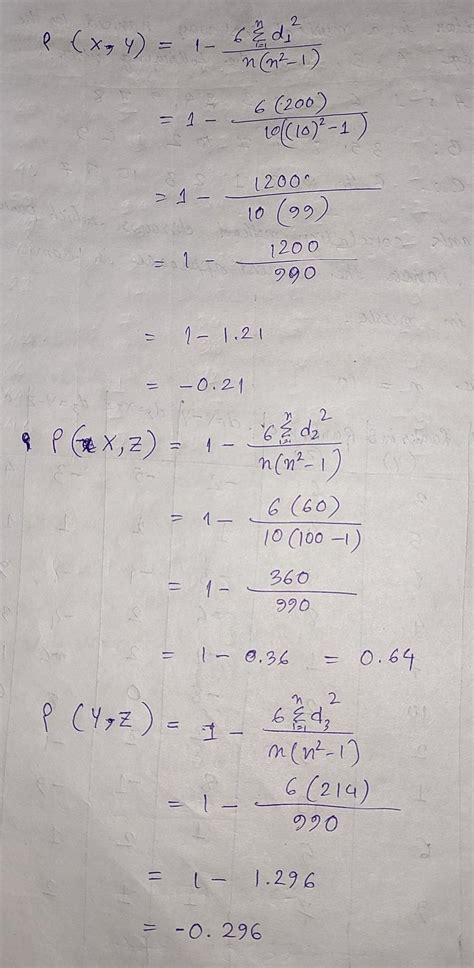 ρ (X, Y) = 1 - 6 Σⁿᵢ₌₁ d₁² / n(n²-1)
= 1 - 6(200) / 10((10)²-1)
= 1 - 1200 / 10(99)
= 1 - 1200 / 990
= 1 - 1.21
= -0.21
ρ(X, Z) = 1 - 6 Σⁿᵢ₌₁ d₂² / n(n²-1)
= 1 - 6(60) / 10(100-1)
= 1 - 360 / 990
= 1 - 0.36 = 0.64
ρ (Y, Z) = 1 - 6 Σⁿᵢ₌₁ d₃² / n(n²-1)
= 1 - 6(214) / 990
= 1 - 1.296
= -0.296